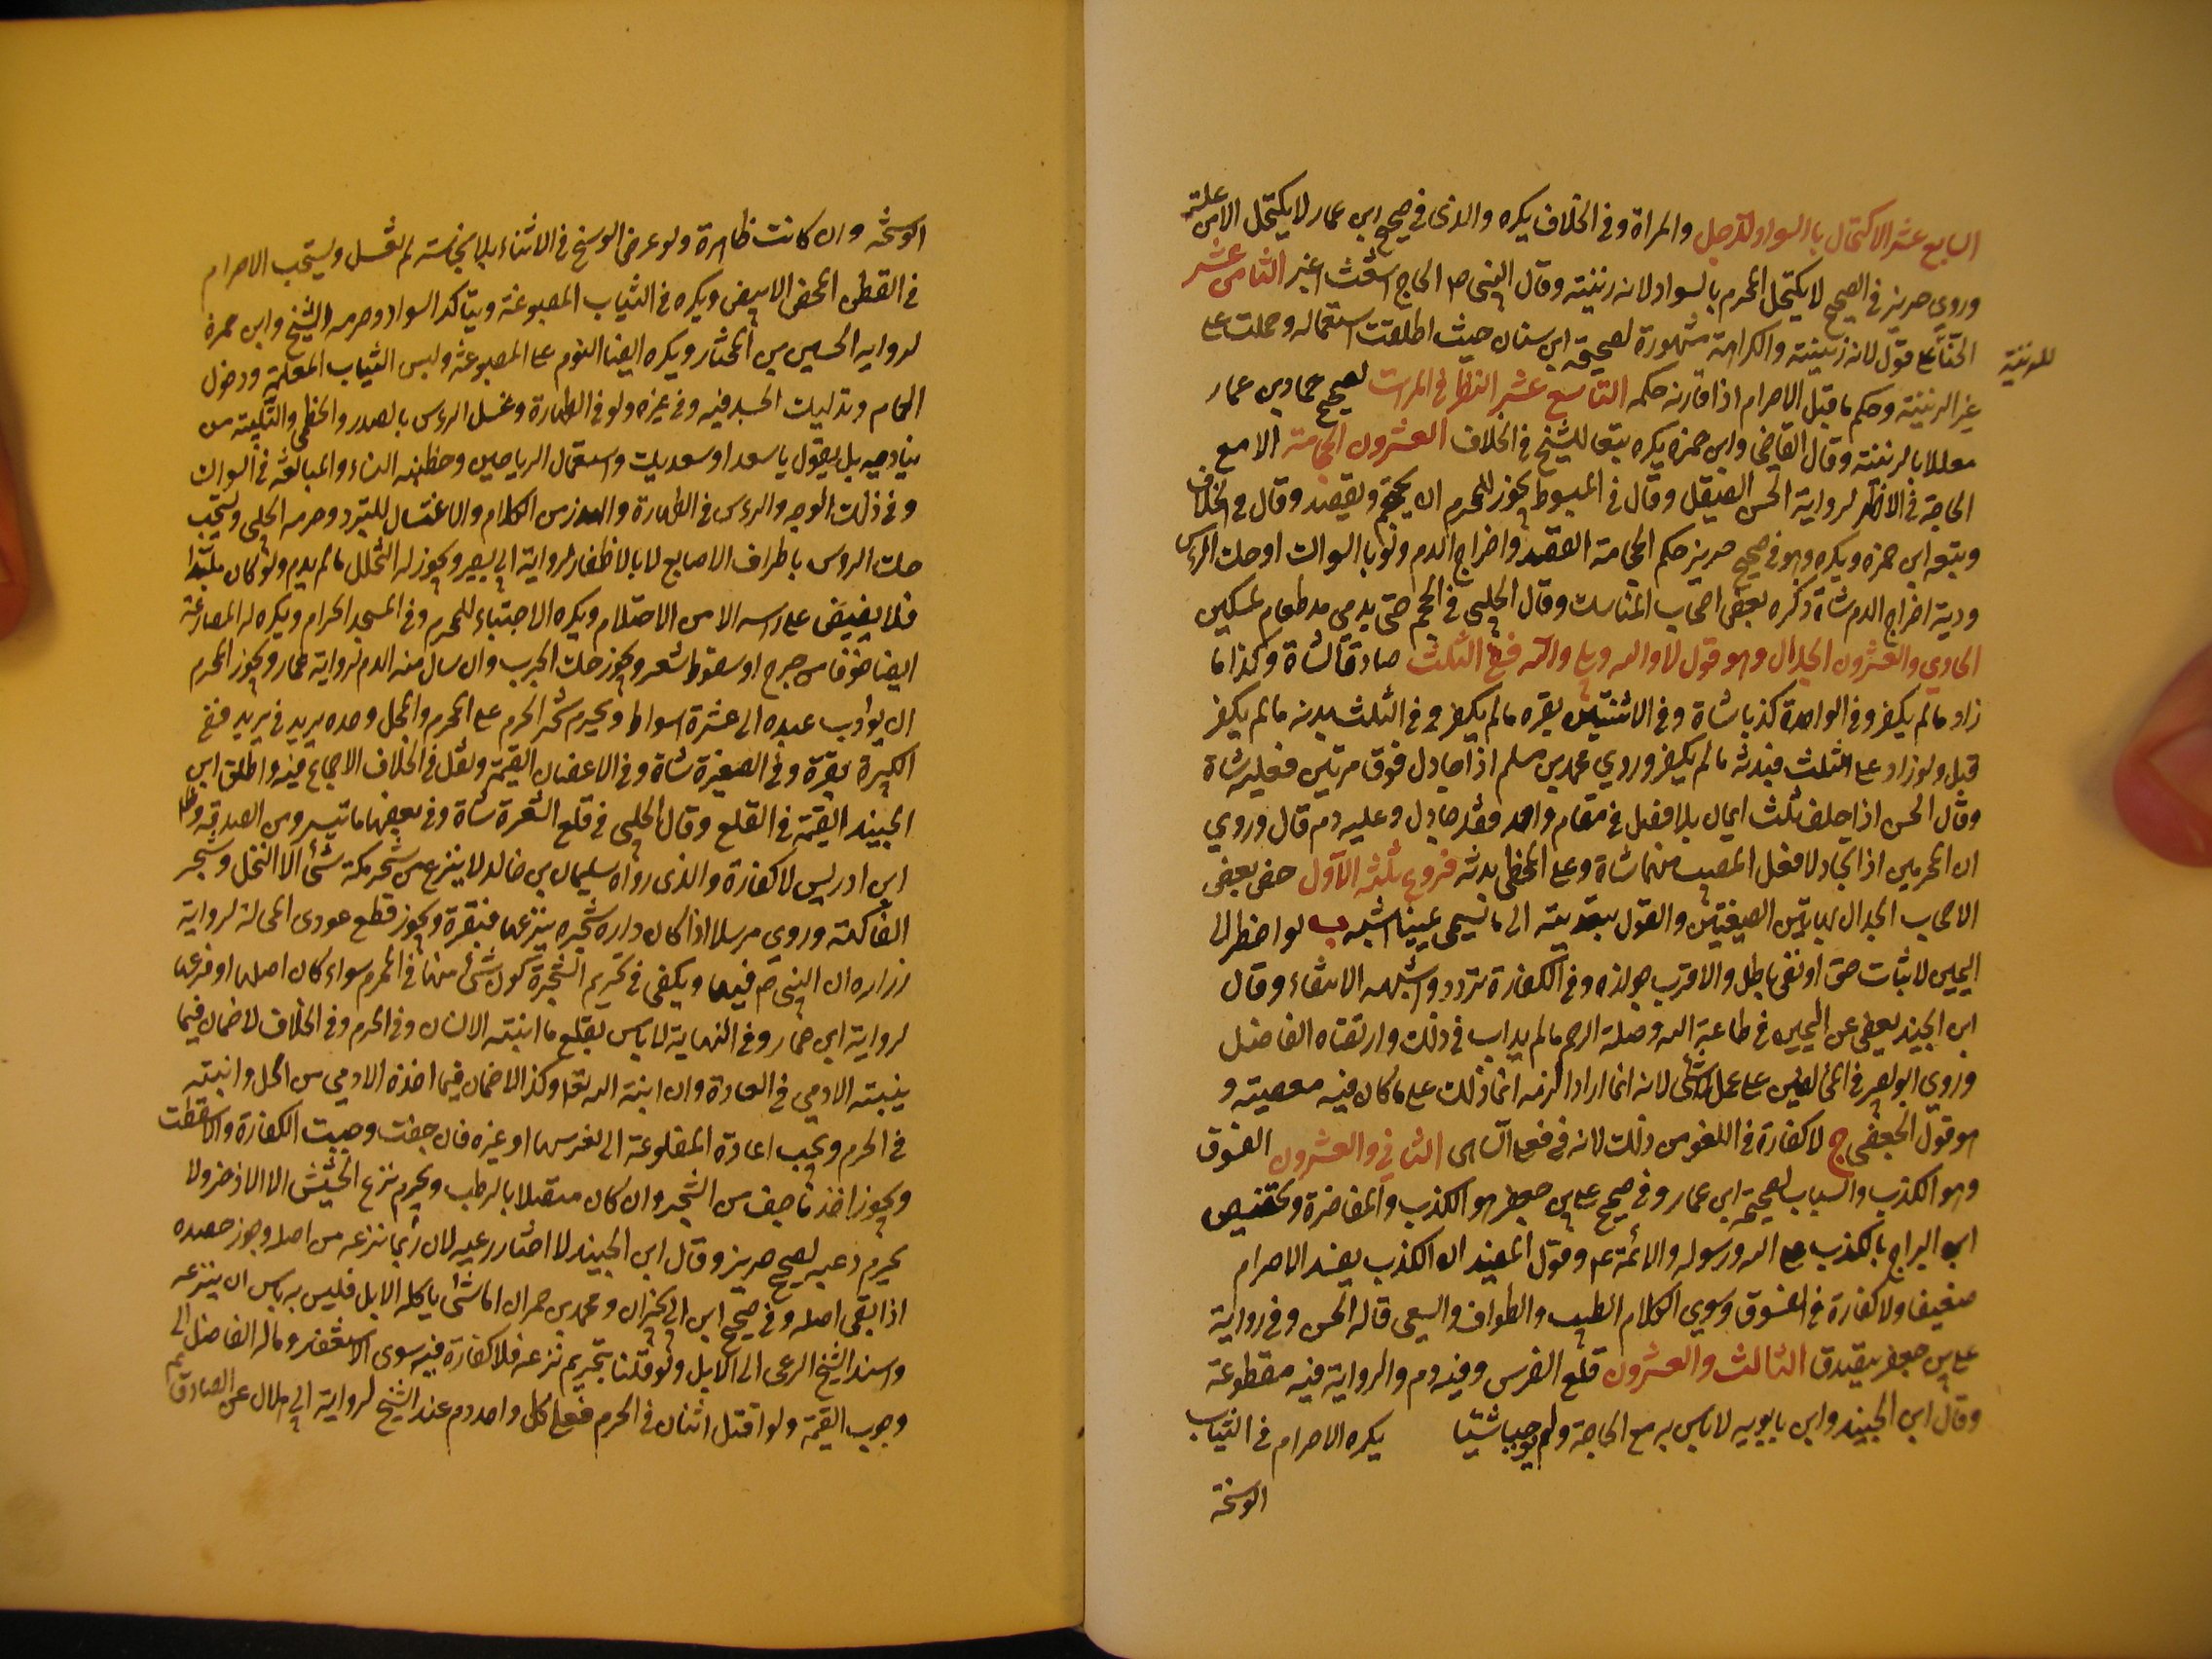 السابع عشر الاكتحال بالسواد للرجل والمراة وفي الخلاف يكره والذى في صحيح ابن عمار لا يكتحل الا من علة
وروى حريز في الصحيح لا يكتحل المحرم بالسواد لانه زينة وقال النبى ص الحاج اشعث اغبر الثامن عشر
الحناء على قول لانه زينة والكراهة مشهورة لصحيحة ابن سنان حيث اطلقت استعماله وحملت على
للزينة
غير الزينة وحكم ما قبل الاحرام اذا قارنه حكمه التاسع عشر النظر في المرات لصحيح حماد بن عمار
معللا بالزينة وقال القاضي وابن حمزه يكره تبعا للشيخ في الخلاف العشرون الحجامة الا مع
الحاجة في الاظهر لرواية الحسن الصيقل وقال في المبسوط يجوز للمحرم ان يحتجم ويفتصد وقال في الخلاف
وتبعه ابن حمزه ويكره وهو في صحيح حريز حكم الحجامة الفصد واخراج الدم ولو بالسواك او حك الراس
ودية اخراج الدم شاة ذكره بعض اصحاب المناسك وقال الحلبي في الجسم حتى يدمي مد طعام لمسكين
الحادي والعشرون الجدال وهو قول لا والله وبلى والله ففي الثلث صادقا شاة وكذا ما
زاد ما لم يكفر وفي الواحدة كذبا شاة وفي الاثنتين بقره ما لم يكفر وفي الثلث بدنه ما لم يكفر
قيل ولو زاد على الثلث فبدنة ما لم يكفر وروي محمد بن مسلم اذا جادل فوق مرتين فعليه شاة
وقال الحسن اذا حلف ثلث ايمان بلا فصل في مقام واحد فقد جادل وعليه دم قال وروي
ان المحرمين اذا تجادلا فعلى المصيب منهما شاة وعلى المخطي بدنة فروع ثلثة الاول خص بعض
الاصحاب الجدال بهاتين الصيغتين والقول بتعديته الى ما يسمى يمينا اشبه ب لو اضطر الى
اليمين لاثبات حق او نفي باطل والاقرب جوازه وفي الكفارة تردد واشبهه الانتفاء وقال
ابن الجنيد يعفى عن اليمين في طاعة الله وصلة الرحم ما لم يداب في ذلك وارتضاه الفاضل
وروي ابو بصير في المتخالفين على عمل شئ لانه انما اراد اكرامه انما ذلك على ما كان فيه معصية و
هو قول الجعفي ج لا كفارة في اللغو من ذلك لانه في معنى الساهى الثاني والعشرون الفسوق
وهو الكذب والسباب لصحيحة ابن عمار وفي صحيح على بن جعفر هو الكذب والمفاخرة وتخصيص
ابن البراج بالكذب على الله ورسوله والائمة ع وقول المفيد ان الكذب يفسد الاحرام
ضعيفا ولا كفارة في الفسوق وسوى الكلام الطيب والطواف والسعى قاله الحسن وفي رواية
على بن جعفر يتصدق الثالث والعشرون قلع الضرس وفيه دم والرواية فيه مقطوعة
وقال ابن الجنيد وابن بابويه لا باس به مع الحاجة ولم يوجبا شيئا يكره الاحرام في الثياب
الوسخة
الوسخة وان كانت طاهرة ولو عرض الوسخ في الاثناء بلا نجاسة لم تغسل ويستحب الاحرام
في القطن المحض الابيض ويكره في الثياب المصبوغة ويتاكد السواد وحرمه الشيخ وابن حمزة
لرواية الحسين بن المختار ويكره ايضا النوم على المصبوغة ولبس الثياب المعلمة ودخول
الحمام وتدليك الجسد فيه وفي غيره ولو في الطهارة وغسل الراس بالسدر والخطمي والتلبية من
يناديه بل يقول يا سعد او سعديك واستعمال الرياحين وخطبة النساء والمبالغة في السواك
وفي ذلك الوجه والراس في الطهارة والهذر من الكلام والاغتسال للتبرد وحرمه الحلبي ويستحب
حك الراس باطراف الاصابع لا بالاظفار لرواية ابي بصير ويجوز له التخلل ما لم يدم ولو كان ملبدا
فلا يفيض على راسه الا من الاحتلام ويكره الاحتباء للمحرم وفي المسجد الحرام ويكره له المصارعة
ايضا خوفا من جرح او سقوط شعر ويجوز حك الجرب وان سال منه الدم لرواية عمار ويجوز للمحرم
ان يؤدب عبده الى عشرة اسواط ويحرم شجر الحرم على المحرم والمحل وحده بريد في بريد ففي
الكبيرة بقرة وفي الصغيرة شاة وفي الاغصان القيمة ونقل في الخلاف الاجماع فيه واطلق ابن
الجنيد القيمة في القلع وقال الحلبي في قلع الشجرة شاة وفي بعضها ما تيسر من الصدقة وقال
ابن ادريس لا كفارة والذى رواه سليمان بن خالد لا ينزع من شجر مكة شئ الا النخل وشجر
الفاكهة وروي مرسلا اذا كان داره شجره ينزعها فبقرة ويجوز قطع عودى المحالة لرواية
زراره ان النبى ص فيهما ويكفى في تحريم الشجرة كون شئ منها في الحرم سواء كان اصلها او فرعها
لرواية ابن عمار وفي النهاية لا باس بقلع ما انبته الانسان وفي الحرم وفي الخلاف لا ضمان فيما
ينبته الادمي في العادة وان انبته الله تعا وكذا لا ضمان فيما اخذه الادمي من الحل وانبته
في الحرم ويجب اعادة المقلوعة الى الغرسها او غيره فان جفت وجبت الكفارة والا سقطت
ويجوز اخذ ما جف من الشجر وان كان متصلا بالرطب ويحرم نزع الحشيش الا الاذخر ولا
يحرم رعيه لصحيح حريز وقال ابن الجنيد لا اختار رعيه لان ربما نزعه من اصله وجوز حصده
اذا بقي اصله وفي صحيح ابن ابي نجران ومحمد بن حمران اما شئ ياكله الابل فليس به باس ان ينزعه
واسند الشيخ الرعى الى الابل ولو قلنا بتحريم نزعه فلا كفارة فيه سوى الاستغفار ومال الفاضل الى
وجوب القيمة ولو قتل اثنان في الحرم فعلى كل واحد دم عند الشيخ لرواية ابي هلال عن الصادق ع